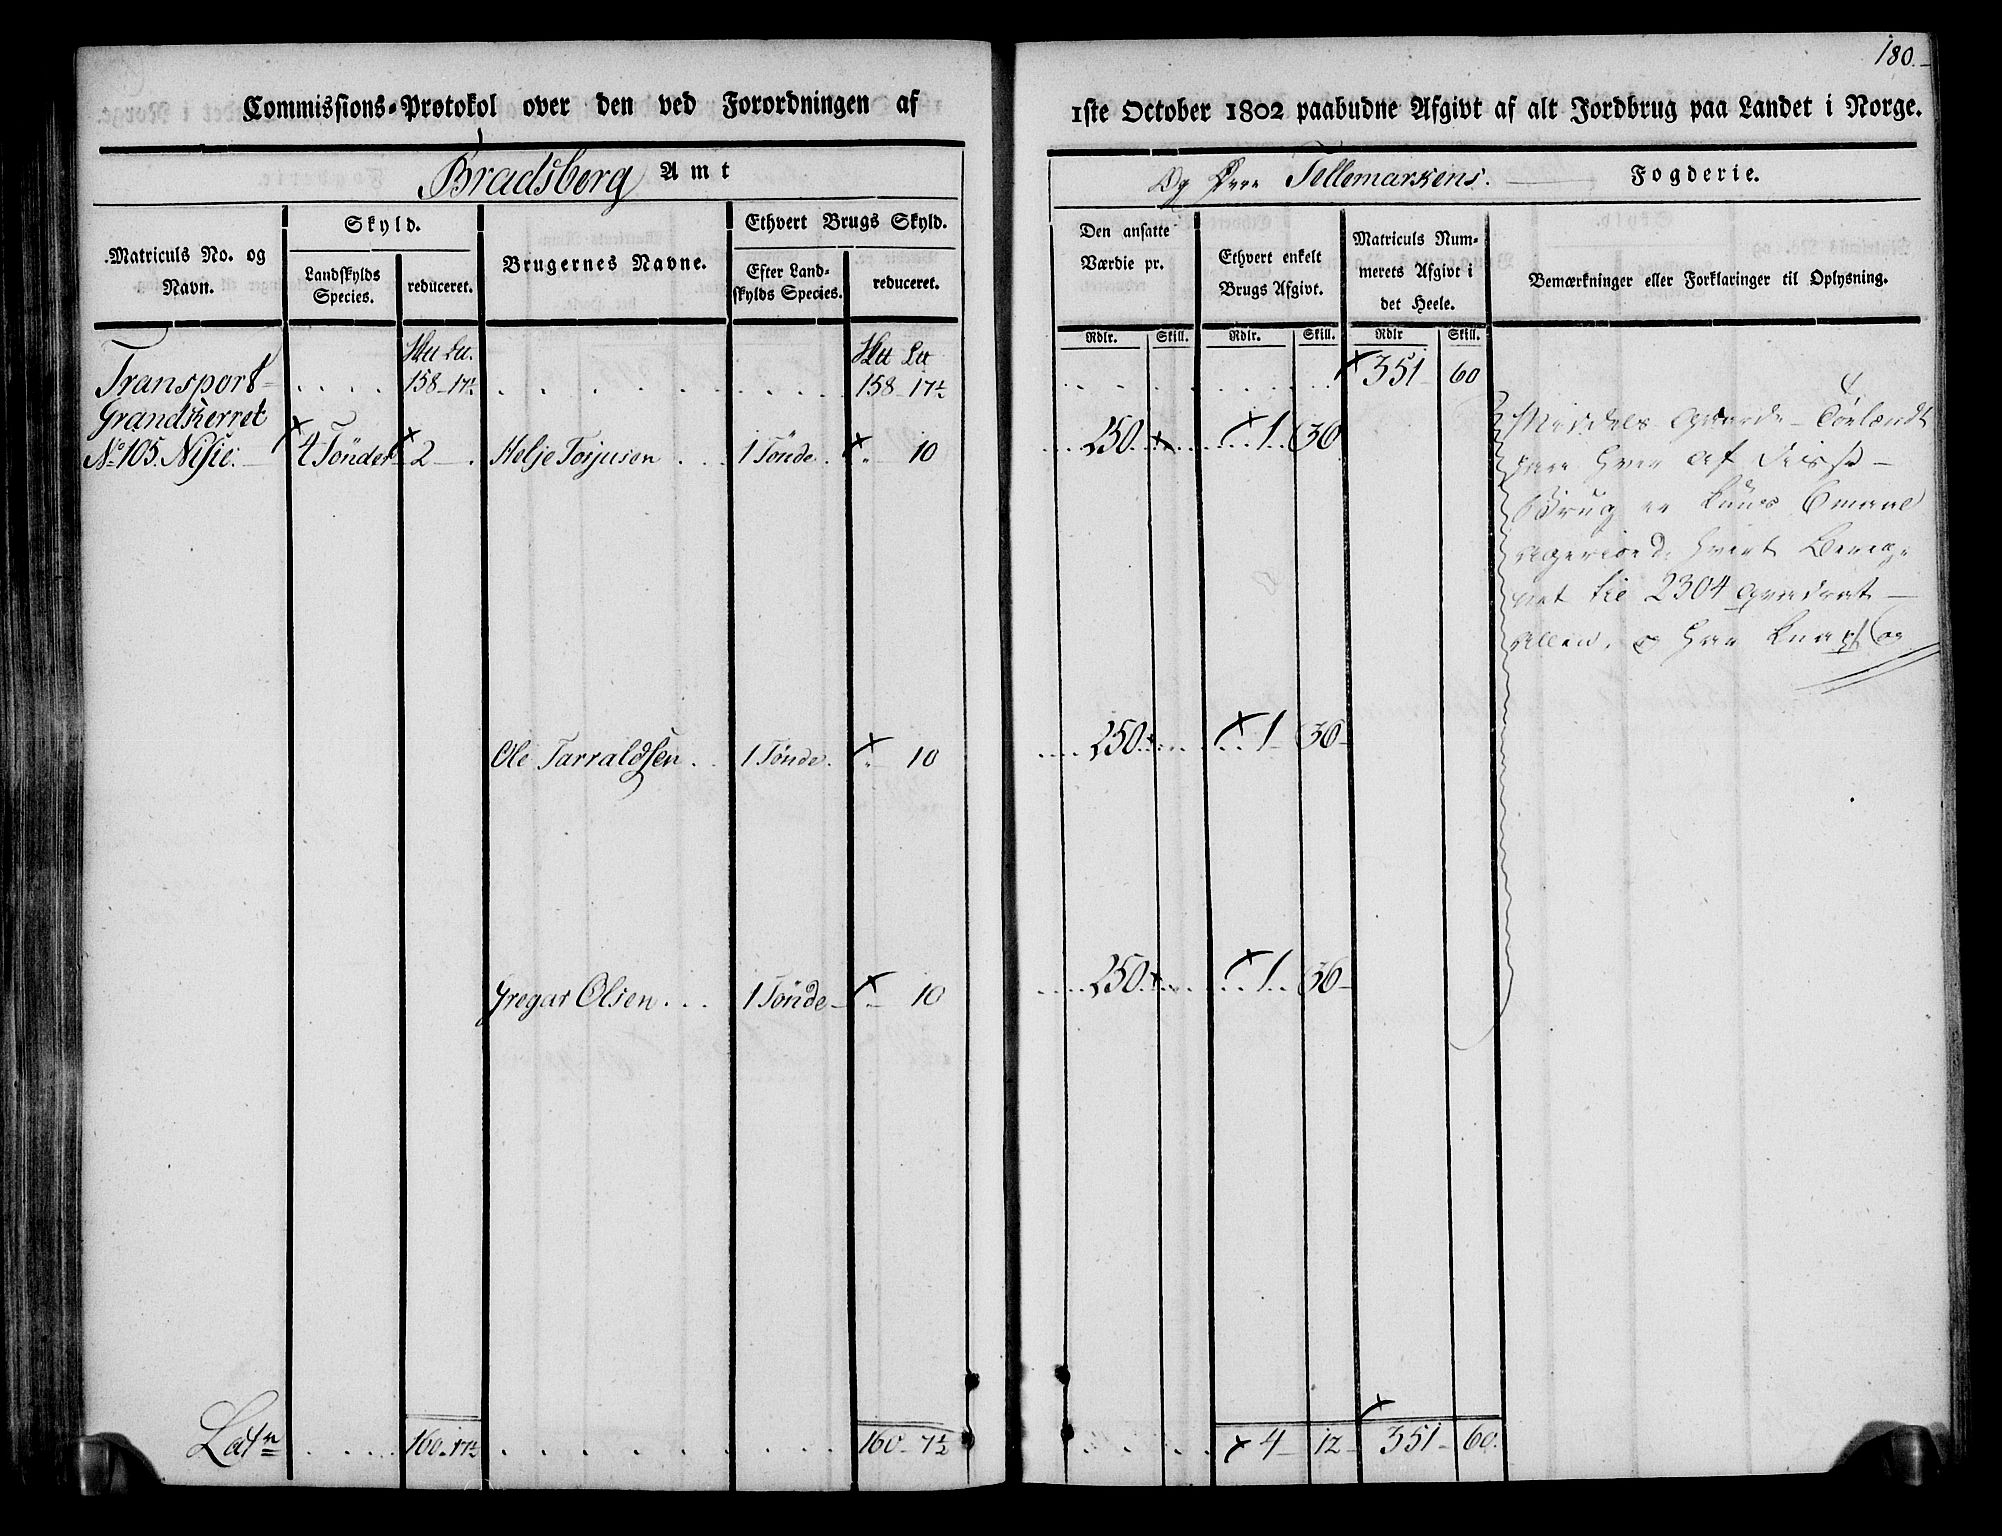 180.
Commissions-Protokol over den ved Forordningen af 1ste October 1802 paabudne Afgivt af alt Jordbrug paa Landet i Norge.
Bradsberg Amt
Og Øvre Tellemarkens. Fogderie.
Matriculs No. og Navn.
Skyld.
Landskylds Species.
reduceret.
Brugernes Navne.
Ethvert Brugs Skyld.
Efter Landskylds Species.
reduceret.
Den ansatte Værdie pr.
Ethvert enkelt Brugs Afgivt.
Matriculs Nummerets Afgivt i det Heele.
Bemærkninger eller Forklaringer til Oplysning.
Rdlr. Skill. Rdlr. Skill. Rdlr Skill.
Hu Lu. Hu Lu
Transport 158 - 17½ 158 - 17½ 351 60
Grandsherret
No 105. Nisie. 4 Tønder 2 Helje Torjusen 1 Tønde 10 250 1 36
Middels Gaarde
hver af disse
Brug er 6 maal
Agerjord, hvert Bereg-
net til 2304 qvadrat
Allen, og har knap
Ole Tarraldsen 1 Tønde 10 250 1 36
Gregar Olsen 1 Tønde 10 250 1 36
Latr 160 - 17½ 160 - 7½ 4 12 351 60